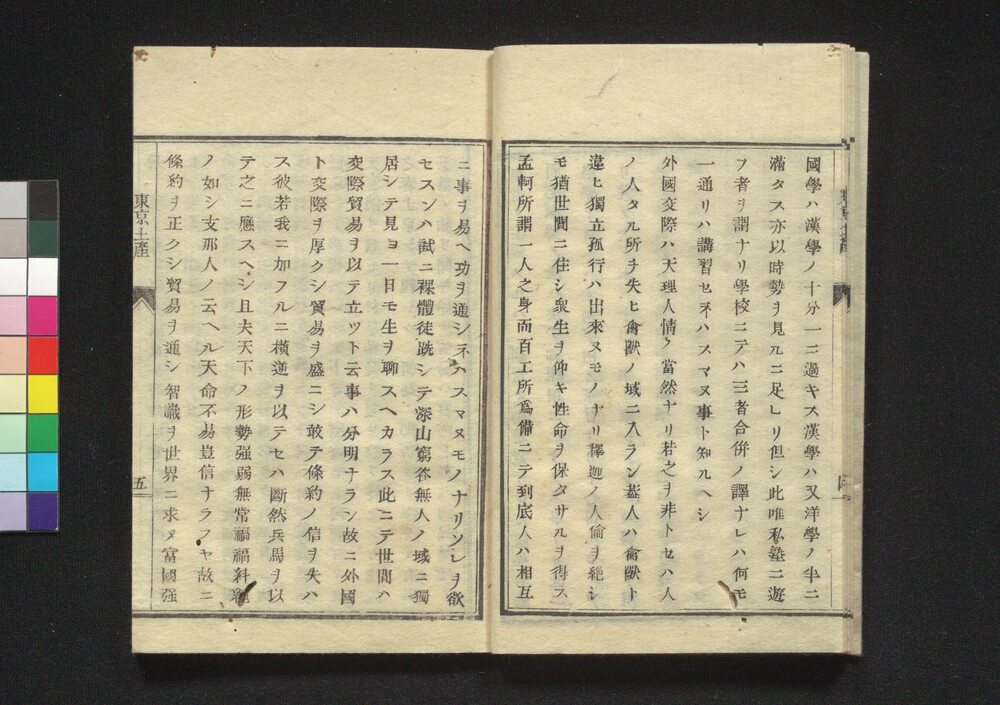 國學ハ漢學ノ十分一ニ過キス漢學ハ又洋學ノ半ニ
滿タス亦以時勢ヲ見ルニ足レリ但シ此唯私塾ニ遊
フ者ヲ謂ナリ學校ニテハ三者合併ノ譯ナレハ何モ
一通リハ講習セネハスマヌ事ト知ルヘシ
外國交際ハ天理人情ノ當然ナリ若之ヲ非トセハ人
ノ人タル所ヲ失ヒ禽獸ノ域ニ入ラン蓋人ハ禽獸ト
違ヒ獨立孤行ハ出來ヌモノナリ釋迦ノ人倫ヲ絶シ
モ猶世間ニ住シ衆生ヲ仰キ性命ヲ保タサルヲ得ス
孟軻所謂一人之身而百工所爲備ニテ到底人ハ相互
ニ事ヲ易ヘ功ヲ通シネハスマヌモノナリソレヲ欲
セスンハ試ニ裸體徒跣シテ深山窮谷無人ノ域ニ獨
居シテ見ヨ一日モ生ヲ聊スヘカラス此ニテ世間ハ
交際貿易ヲ以テ立ツト云事ハ分明ナラン故ニ外國
ト交際ヲ厚クシ貿易ヲ盛ニシ敢テ條約ノ信ヲ失ハ
ス彼若我ニ加フルニ横逆ヲ以テセハ斷然兵馬ヲ以
テ之ニ應スヘシ且夫天下ノ形勢强弱無常禍福糾纆
ノ如シ支那人ノ云ヘル天命不易豈信ナラフヤ故ニ
條約ヲ正クシ貿易ヲ通シ智識ヲ世界ニ求メ富國强
東京土產
五